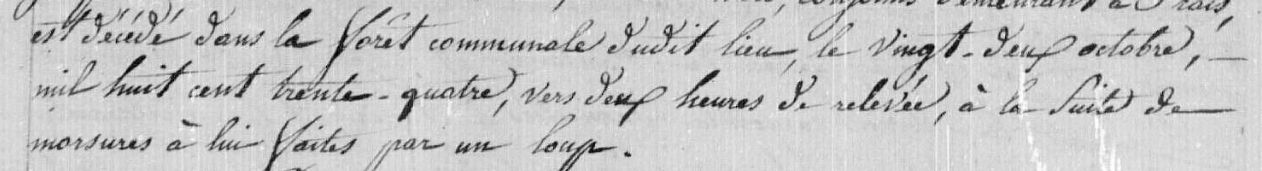 conjoints demeurant à
est décédé dans la forêt communale dudit lieu, le vingt-deux octobre, —
mil huit cent trente-quatre, vers deux heures de relevée, à la suite de —
morsures à lui faites par un loup.